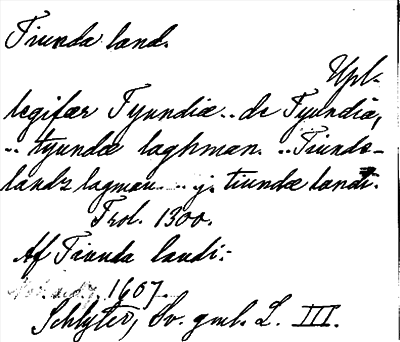 Tiunda land.
Upl-
legifær Tyundiæ .. de Tyundia,
.. tyundæ laghman. .. Tiunda-
landz lagman .. j. tiundæ landi.
Prol. 1300.
Af Tiunda landi:-
1607.
Schlyter, Sv. gml. L. III.